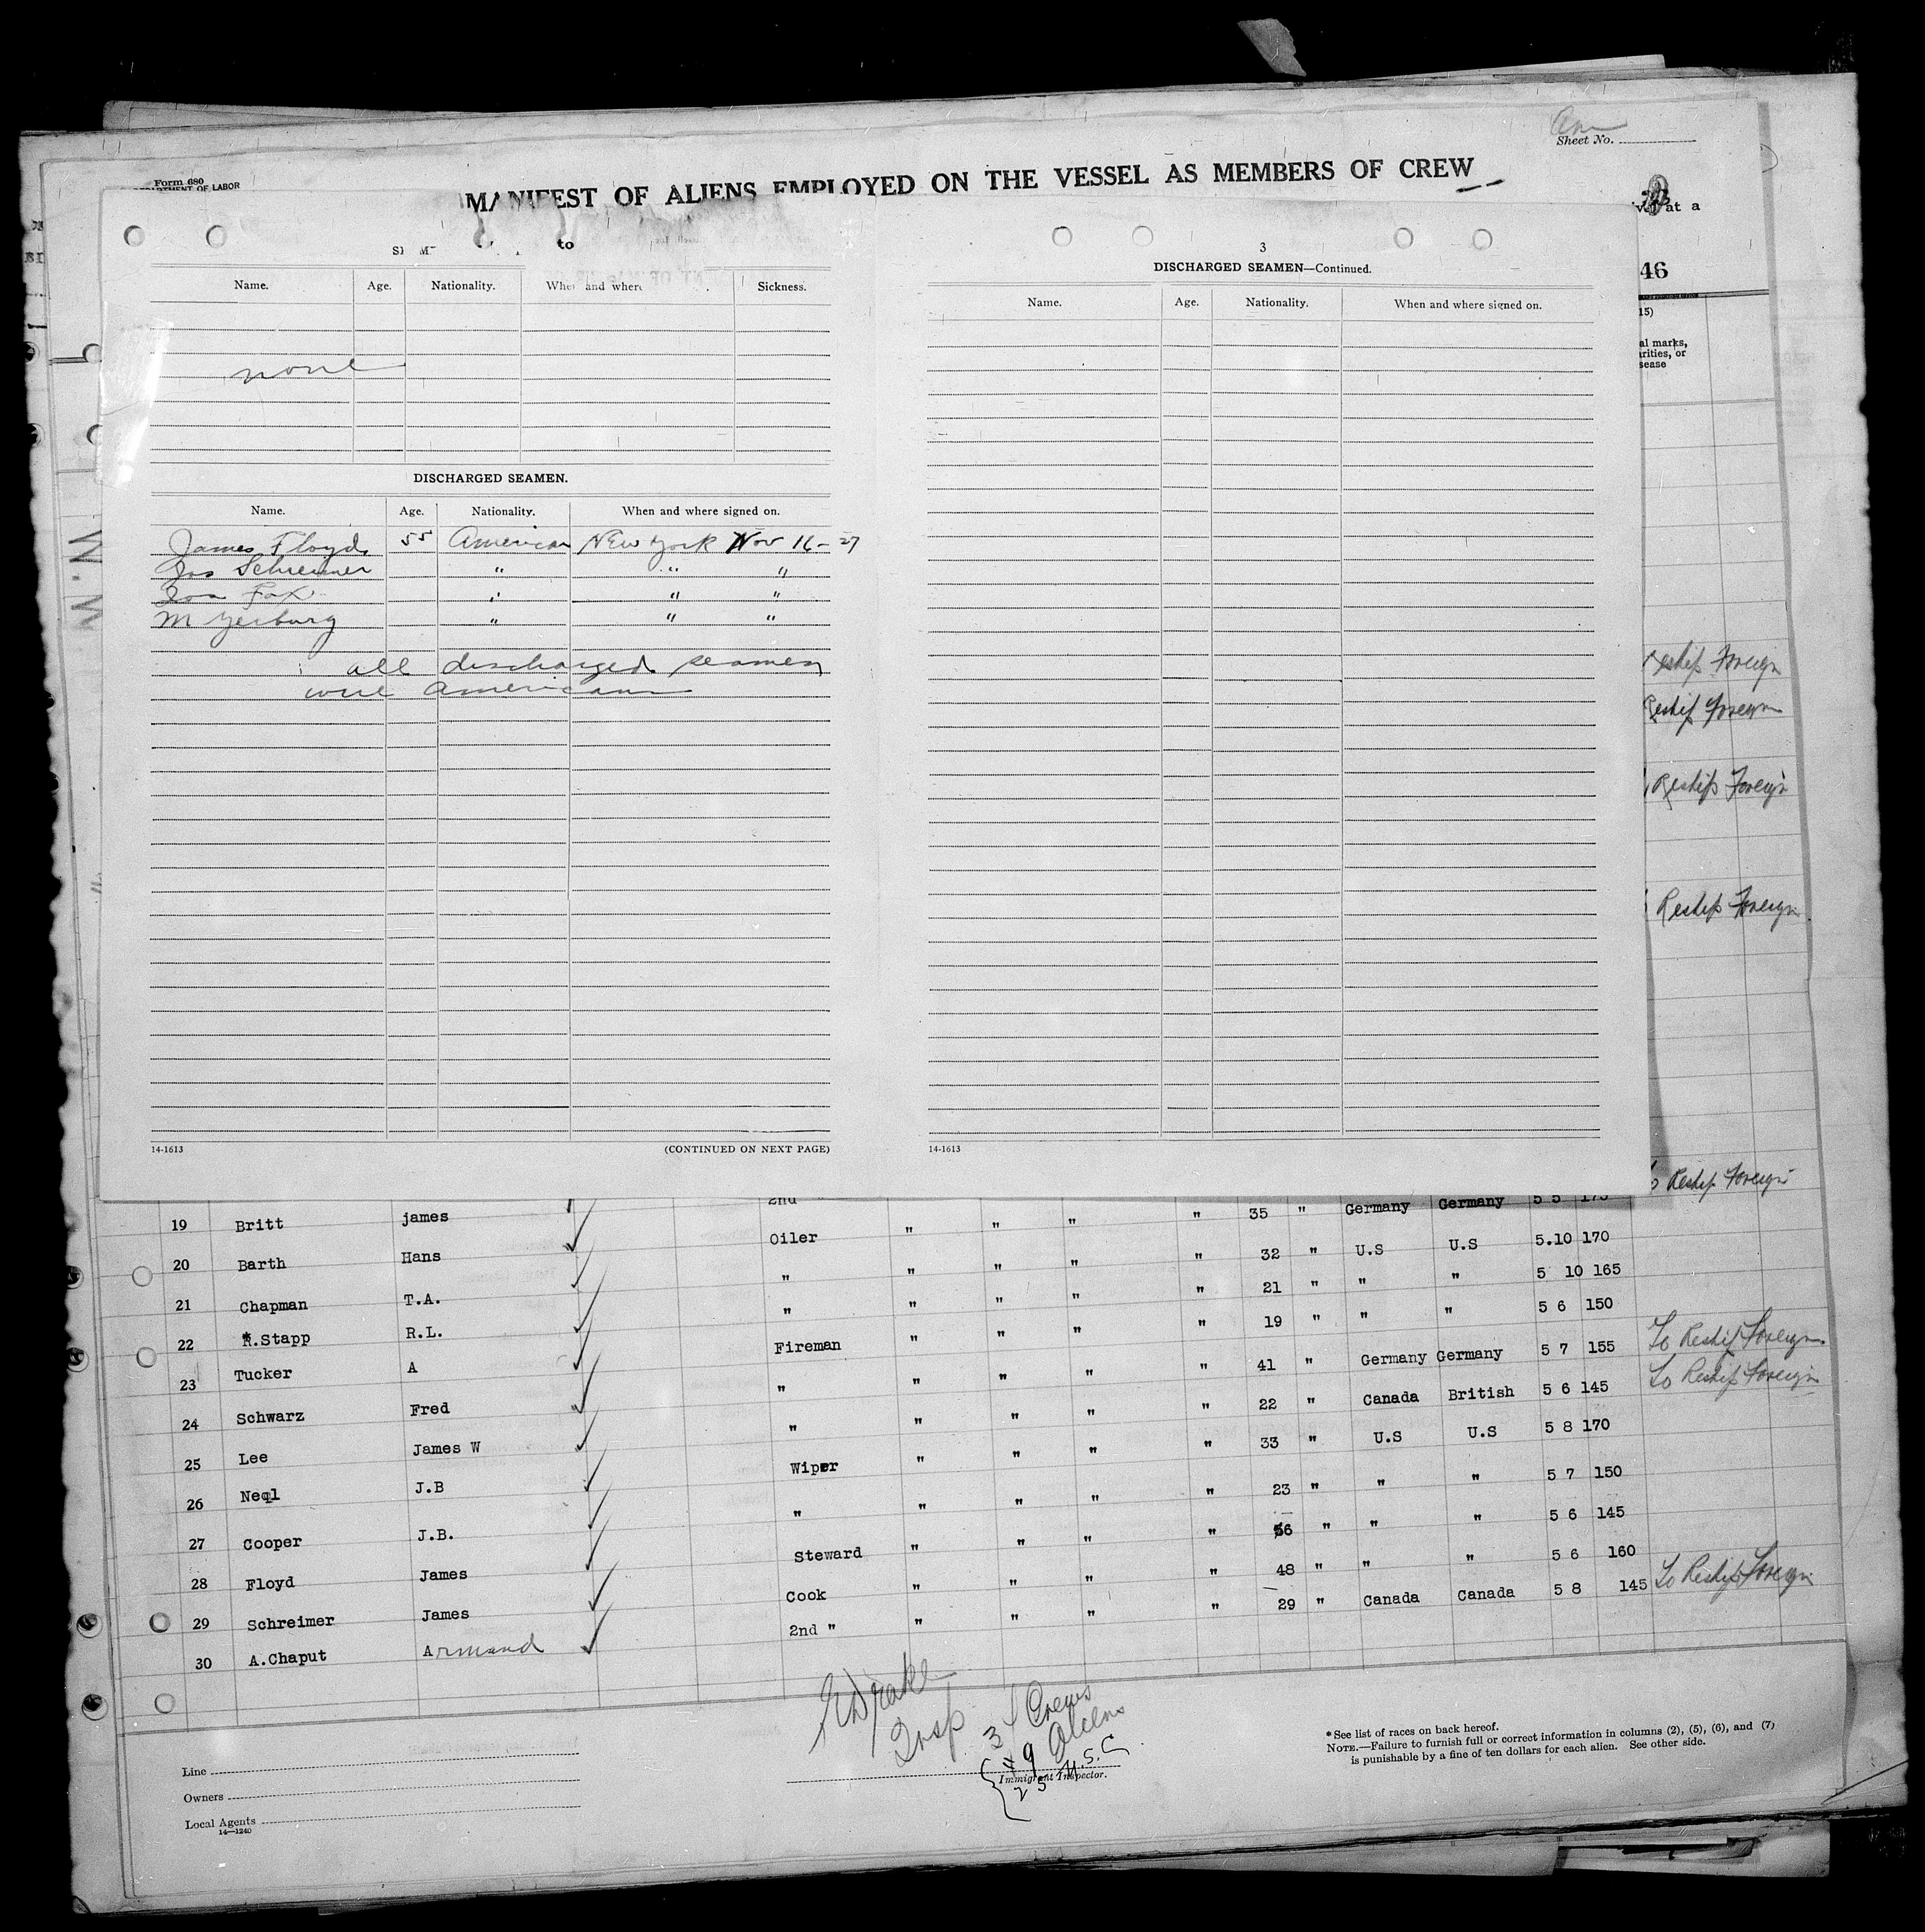 Sheet No.
Form 680
DEPARTMENT OF LABOR
MANIFEST OF ALIENS EMPLOYED ON THE VESSEL AS MEMBERS OF CREW
at a
46
15)
al marks,
rities, or
sease
to
Name. Age. Nationality. When and where Sickness.
none
DISCHARGED SEAMEN.
Name. Age. Nationality. When and where signed on.
James Floyd 55 American New York Nov 16-27
Jas Schreimer " " "
Fox " " "
M Yerburg " " "
all discharged seamen
were Americans
14-1613 (CONTINUED ON NEXT PAGE)
3
DISCHARGED SEAMEN—Continued.
Name. Age. Nationality. When and where signed on.
14-1613
Reship Foreign
Reship Foreign
Reship Foreign
Reship Foreign
Reship Foreign
2nd 5 5 175
19 Britt james Oiler " " " " 35 " Germany Germany 5.10 170
20 Barth Hans " " " " " 32 " U.S U.S 5 10 165
21 Chapman T.A. " " " " " 21 " " " 5 6 150
22 R.Stapp R.L. Fireman " " " " 19 " " " 5 7 155 To Reship Foreign
23 Tucker A " " " " " 41 " Germany Germany 5 6 145 To Reship Foreign
24 Schwarz Fred " " " " " 22 " Canada British 5 8 170
25 Lee James W Wiper " " " " 33 " U.S U.S 5 7 150
26 Neql J.B " " " " " 23 " " " 5 6 145
27 Cooper J.B. Steward " " " " 56 " " " 5 6 160
28 Floyd James Cook " " " " 48 " " " 5 8 145 To Reship Foreign
29 Schreimer James 2nd " " " " " 29 " Canada Canada
30 A.Chaput Armand
Drake
Insp
3 Crews
9 Aliens
25 U.S.C
Immigrant Inspector.
Line
Owners
Local Agents
14—1240
*See list of races on back hereof.
NOTE.—Failure to furnish full or correct information in columns (2), (5), (6), and (7)
is punishable by a fine of ten dollars for each alien. See other side.